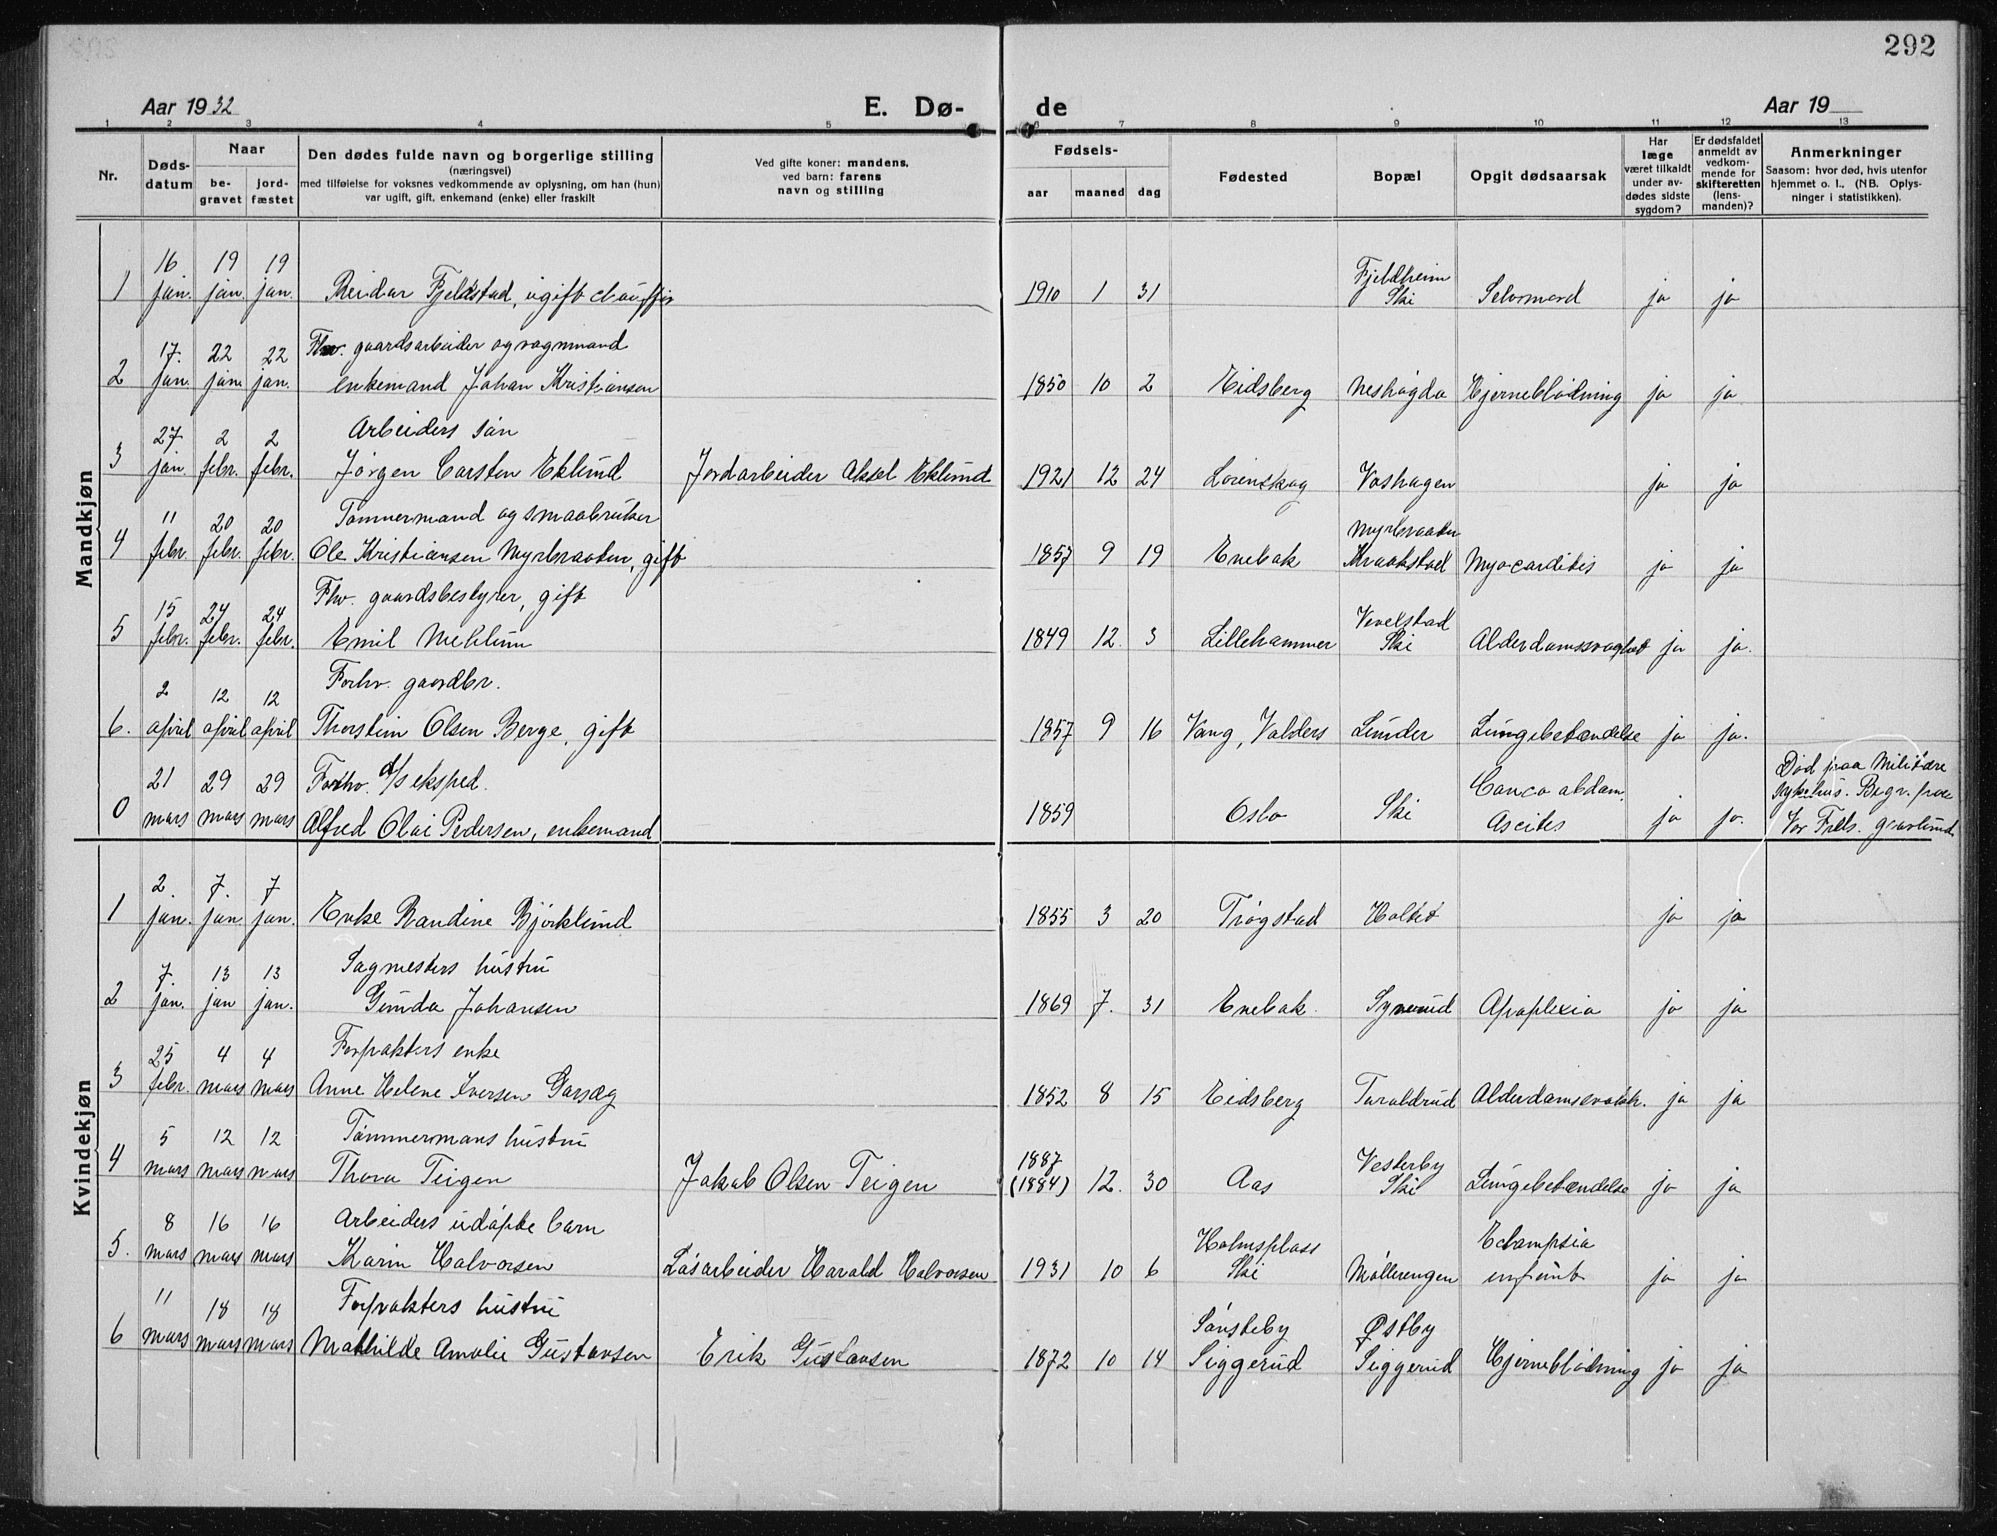 292
Aar 1932
E. Dø-
de
Aar 19
1 2 3 4 5 6 7 8 9 10 11 12 13
Nr.
Døds-
datum
Naar
be-
gravet
jord-
fæstet
Den dødes fulde navn og borgerlige stilling
(næringsvei)
med tilføielse for voksnes vedkommende av oplysning, om han (hun)
var ugift, gift, enkemand (enke) eller fraskilt
Ved gifte koner: mandens,
ved barn: farens
navn og stilling
Fødsels-
aar maaned dag
Fødested
Bopæl
Opgit dødsaarsak
Har
læge
været tilkaldt
under av-
dødes sidste
sygdom?
Er dødsfaldet
anmeldt av
vedkom-
mende for
skifteretten
(lens-
manden)?
Anmerkninger
Saasom: hvor død, hvis utenfor
hjemmet o. l., (NB. Oplys-
ninger i statistikken).
Mandkjøn
16 19 19 Fjeldheim
1 jan. jan. jan. Reidar Fjeldstad, ugift chauffør 1910 1 31 Ski Selvmord ja ja
17. 22 22 Fhv. gaardsarbeider og vognmand
2 jan. jan. jan. enkemand Johan Kristiansen 1850 10 2 Eidsberg Neshøgda Hjerneblødning ja ja
27 2 2 Arbeiders søn
3 jan. febr. febr. Jørgen Carsten Eklund Jordarbeider Aksel Eklund 1921 12 24 Lørenskog Voshagen ja ja
11 20 20 Tømmermand og smaabruker Myrbraaten
4 febr. febr. febr. Ole Kristiansen Myrbraaten, gift 1857 9 19 Enebak Kraakstad Myocarditis ja ja
15 24 24 Fhv. gaardsbestyrer, gift Vevelstad
5 febr. febr. febr. Emil Mehlum 1849 12. 3 Lillehammer Ski Alderdomssvaghet ja ja.
2 12 12 Forhv. gaardbr.
6. april april april Thorstein Olsen Berge, gift 1857 9 16 Vang, Valders Lunder Lungebetændelse ja ja.
21 29 29 Forhv. d/s eksped. Canco abdom. Død paa Militære
Sykehus. Begr. paa
0 mars mars mars Alfred Olai Pedersen, enkemand 1859 Oslo Ski Ascites ja ja. Vor Frels. gravlund
Kvindekjøn
2. 7. 7
1 jan. jan. jan. Enke Randine Bjørklund 1855 3 20 Trøgstad Holtet ja ja
7. 13 13 Sagmesters hustru
2 jan. jan jan. Gunda Johansen 1869 7. 31 Enebak. Synerud Apoplexia ja ja
25 4 4 Forpakters enke
3 febr. mars mars Anne Helene Iversen Garsæg 1852 8 15 Eidsberg Taraldrud Alderdomssvakh. ja ja
5 12 12 Tømmermans hustru 1887 Vesterby
4 mars mars mars Thora Teigen Jakob Olsen Teigen (1884) 12. 30 Aas Ski Lungebetændelse ja ja
8 16 16 Arbeiders udøpte barn Holmsplass Eclampsia
5. mars mars mars Karin Halvorsen Løsarbeider Harald Halvorsen 1931 10 6 Ski Møllerengen infant ja ja
11 18 18 Forpakters hustru Sønsteby Østby
6 mars mars mars Mathilde Amalie Gustavsen Erik Gustavsen 1872 10 14 Siggerud Siggerud Hjerneblødning ja ja